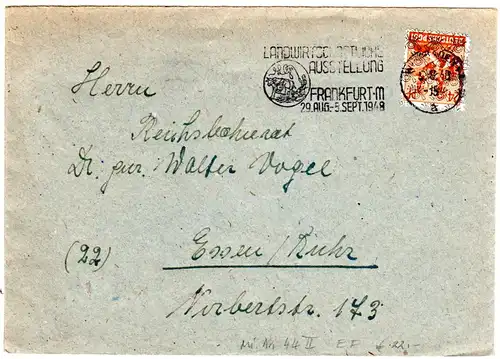 LANDWIRTSCHAFTLICHE
AUSSTELLUNG
FRANKFURT-M
29.AUG.-5.SEPT.1948
DEUTSCHE POST
a
Herrn
Reichsbahnrat
Dr. jur. Walter Vogel
(22) Essen/Ruhr
Norbertstr. 173
Mi. Nr. 44 II EF
22.-